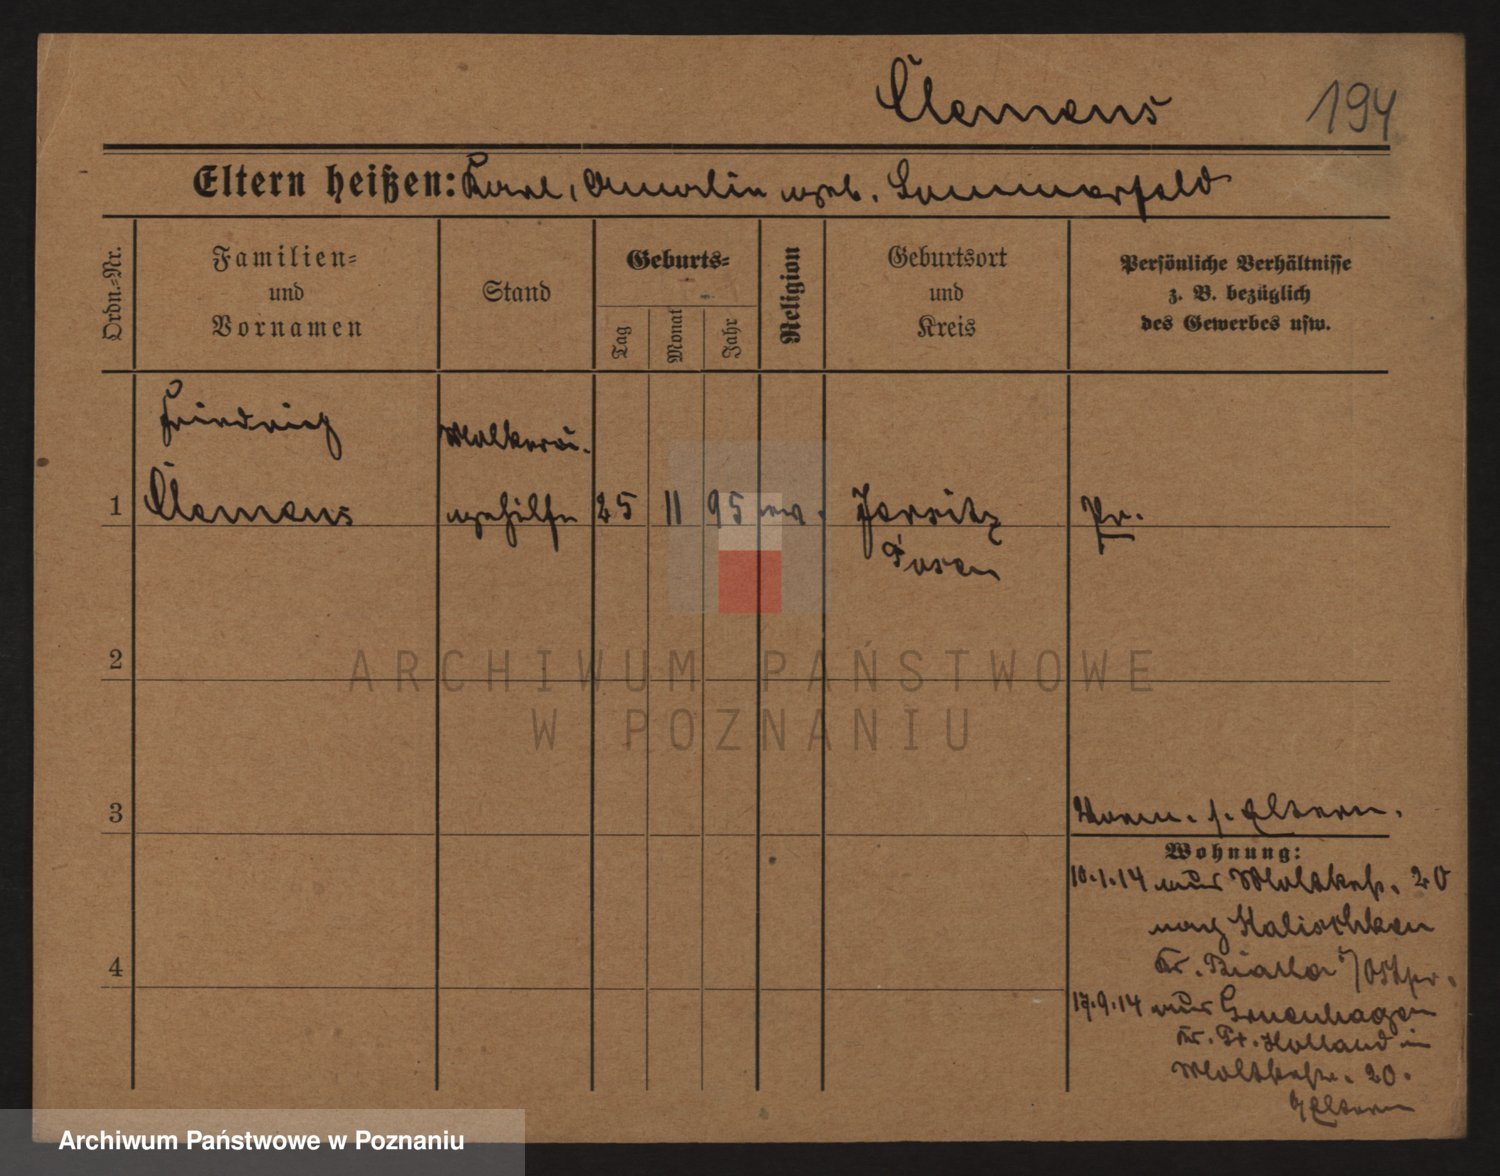 Clemens
194
Eltern heißen: Karl, Amalin geb. Sommerfeld
Ordn.-Nr.
Familien-
und
Vornamen
Stand
Geburts-
Tag
Monat
Jahr
Religion
Geburtsort
und
Kreis
Persönliche Verhältnisse
z. B. bezüglich
des Gewerbes usw.
Friedrich
Clemens
Molkerei-
gehilfe
1
25
11
95
ev.
Jersitz
Posen
Pr.
2
3
Vorm. s. Eltern.
Wohnung:
10.1.14 aus Moltkestr. 20
nach Kalischken
Kr. Bialla i/Ostpr.
4
17.9.14 aus Grünhagen
Kr. Pr. Holland in
Moltkestr. 20.
b/Eltern
ARCHIWUM PAŃSTWOWE
W POZNANIU
Archiwum Państwowe w Poznaniu